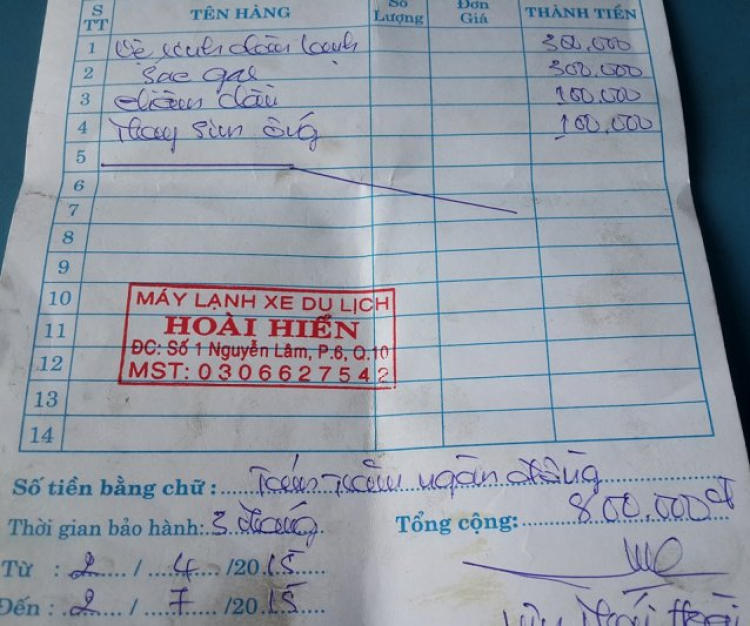 S TT TÊN HÀNG Số Lượng Đơn Giá THÀNH TIỀN
1 Vệ sinh dàn lạnh 300.000
2 Sạc gas 300.000
3 châm dầu 100.000
4 Thay sin ống 100.000
5
6
7
8
9
10
11
12
13
14
MÁY LẠNH XE DU LỊCH
HOÀI HIỂN
ĐC: Số 1 Nguyễn Lâm, P.6, Q.10
MST: 0306627542
Số tiền bằng chữ : Tám Trăm ngàn đồng
Thời gian bảo hành: 3 tháng Tổng cộng: 800.000đ
Từ : 2 / 4 /2015
Đến : 2 / 7 /2015